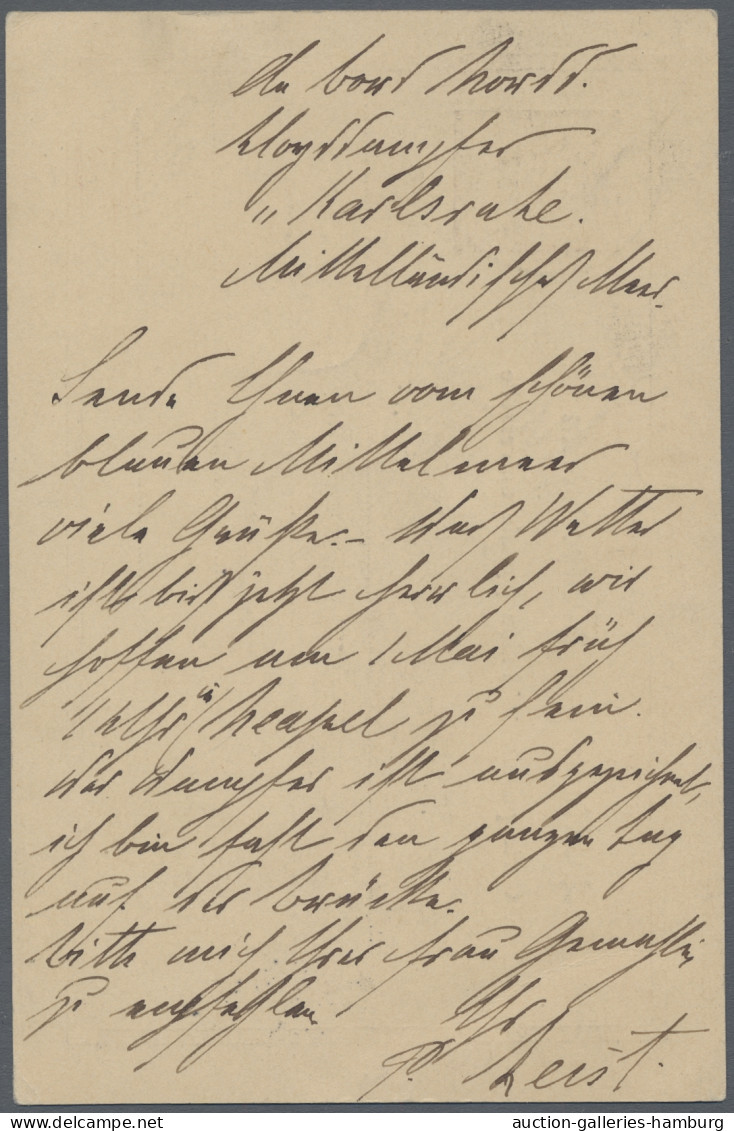 An bord Nordd.
Lloyddampfer
„Karlsruhe.
Mittelländisches Meer.
Sende Ihnen vom schönen
blauen Mittelmeer
viele Grüße.– Das Wetter
ist bis jetzt herrlich, wir
hoffen am 1 Mai früh
1 Uhr in Neapel zu sein.
Der Dampfer ist ausgezeichnet,
ich bin fast den ganzen Tag
auf der Brücke.
Bitte mich Ihrer Frau Gemahlin
zu empfehlen
Ihr
P.
auction-galleries-hamburg